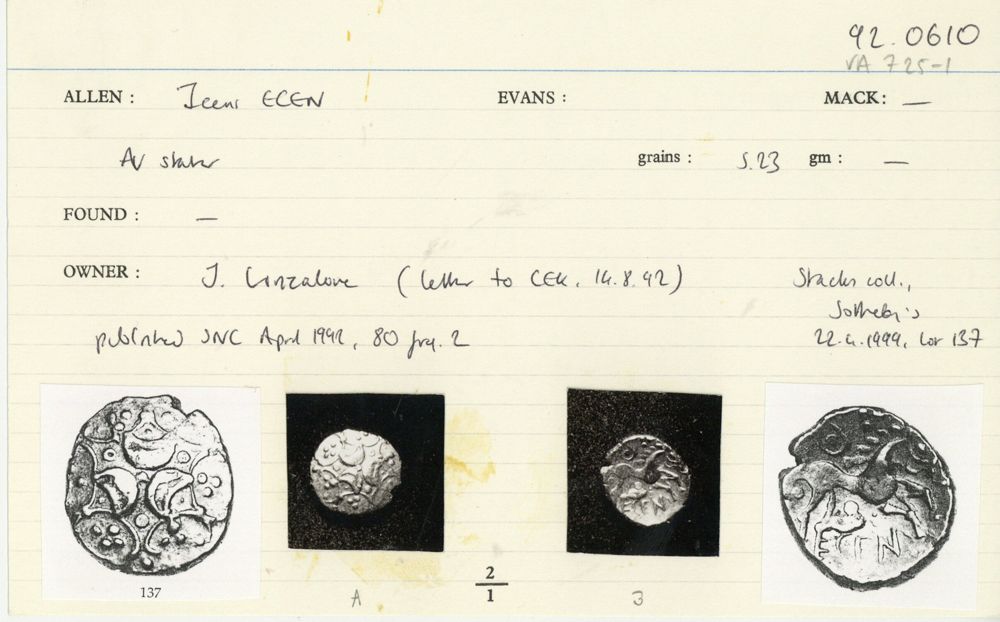 92.0610
VA 725-1
ALLEN : Iceni ECEN EVANS : MACK: —
AV stater grains : 5.23 gm : —
FOUND : —
OWNER : J. (letter to CEK, 14.8.92) Stacks coll.,
Sotheby's
published SNC April 1992, 80 fig. 2 22.4.1999, lot 137
ECEN
137
2
1
A B